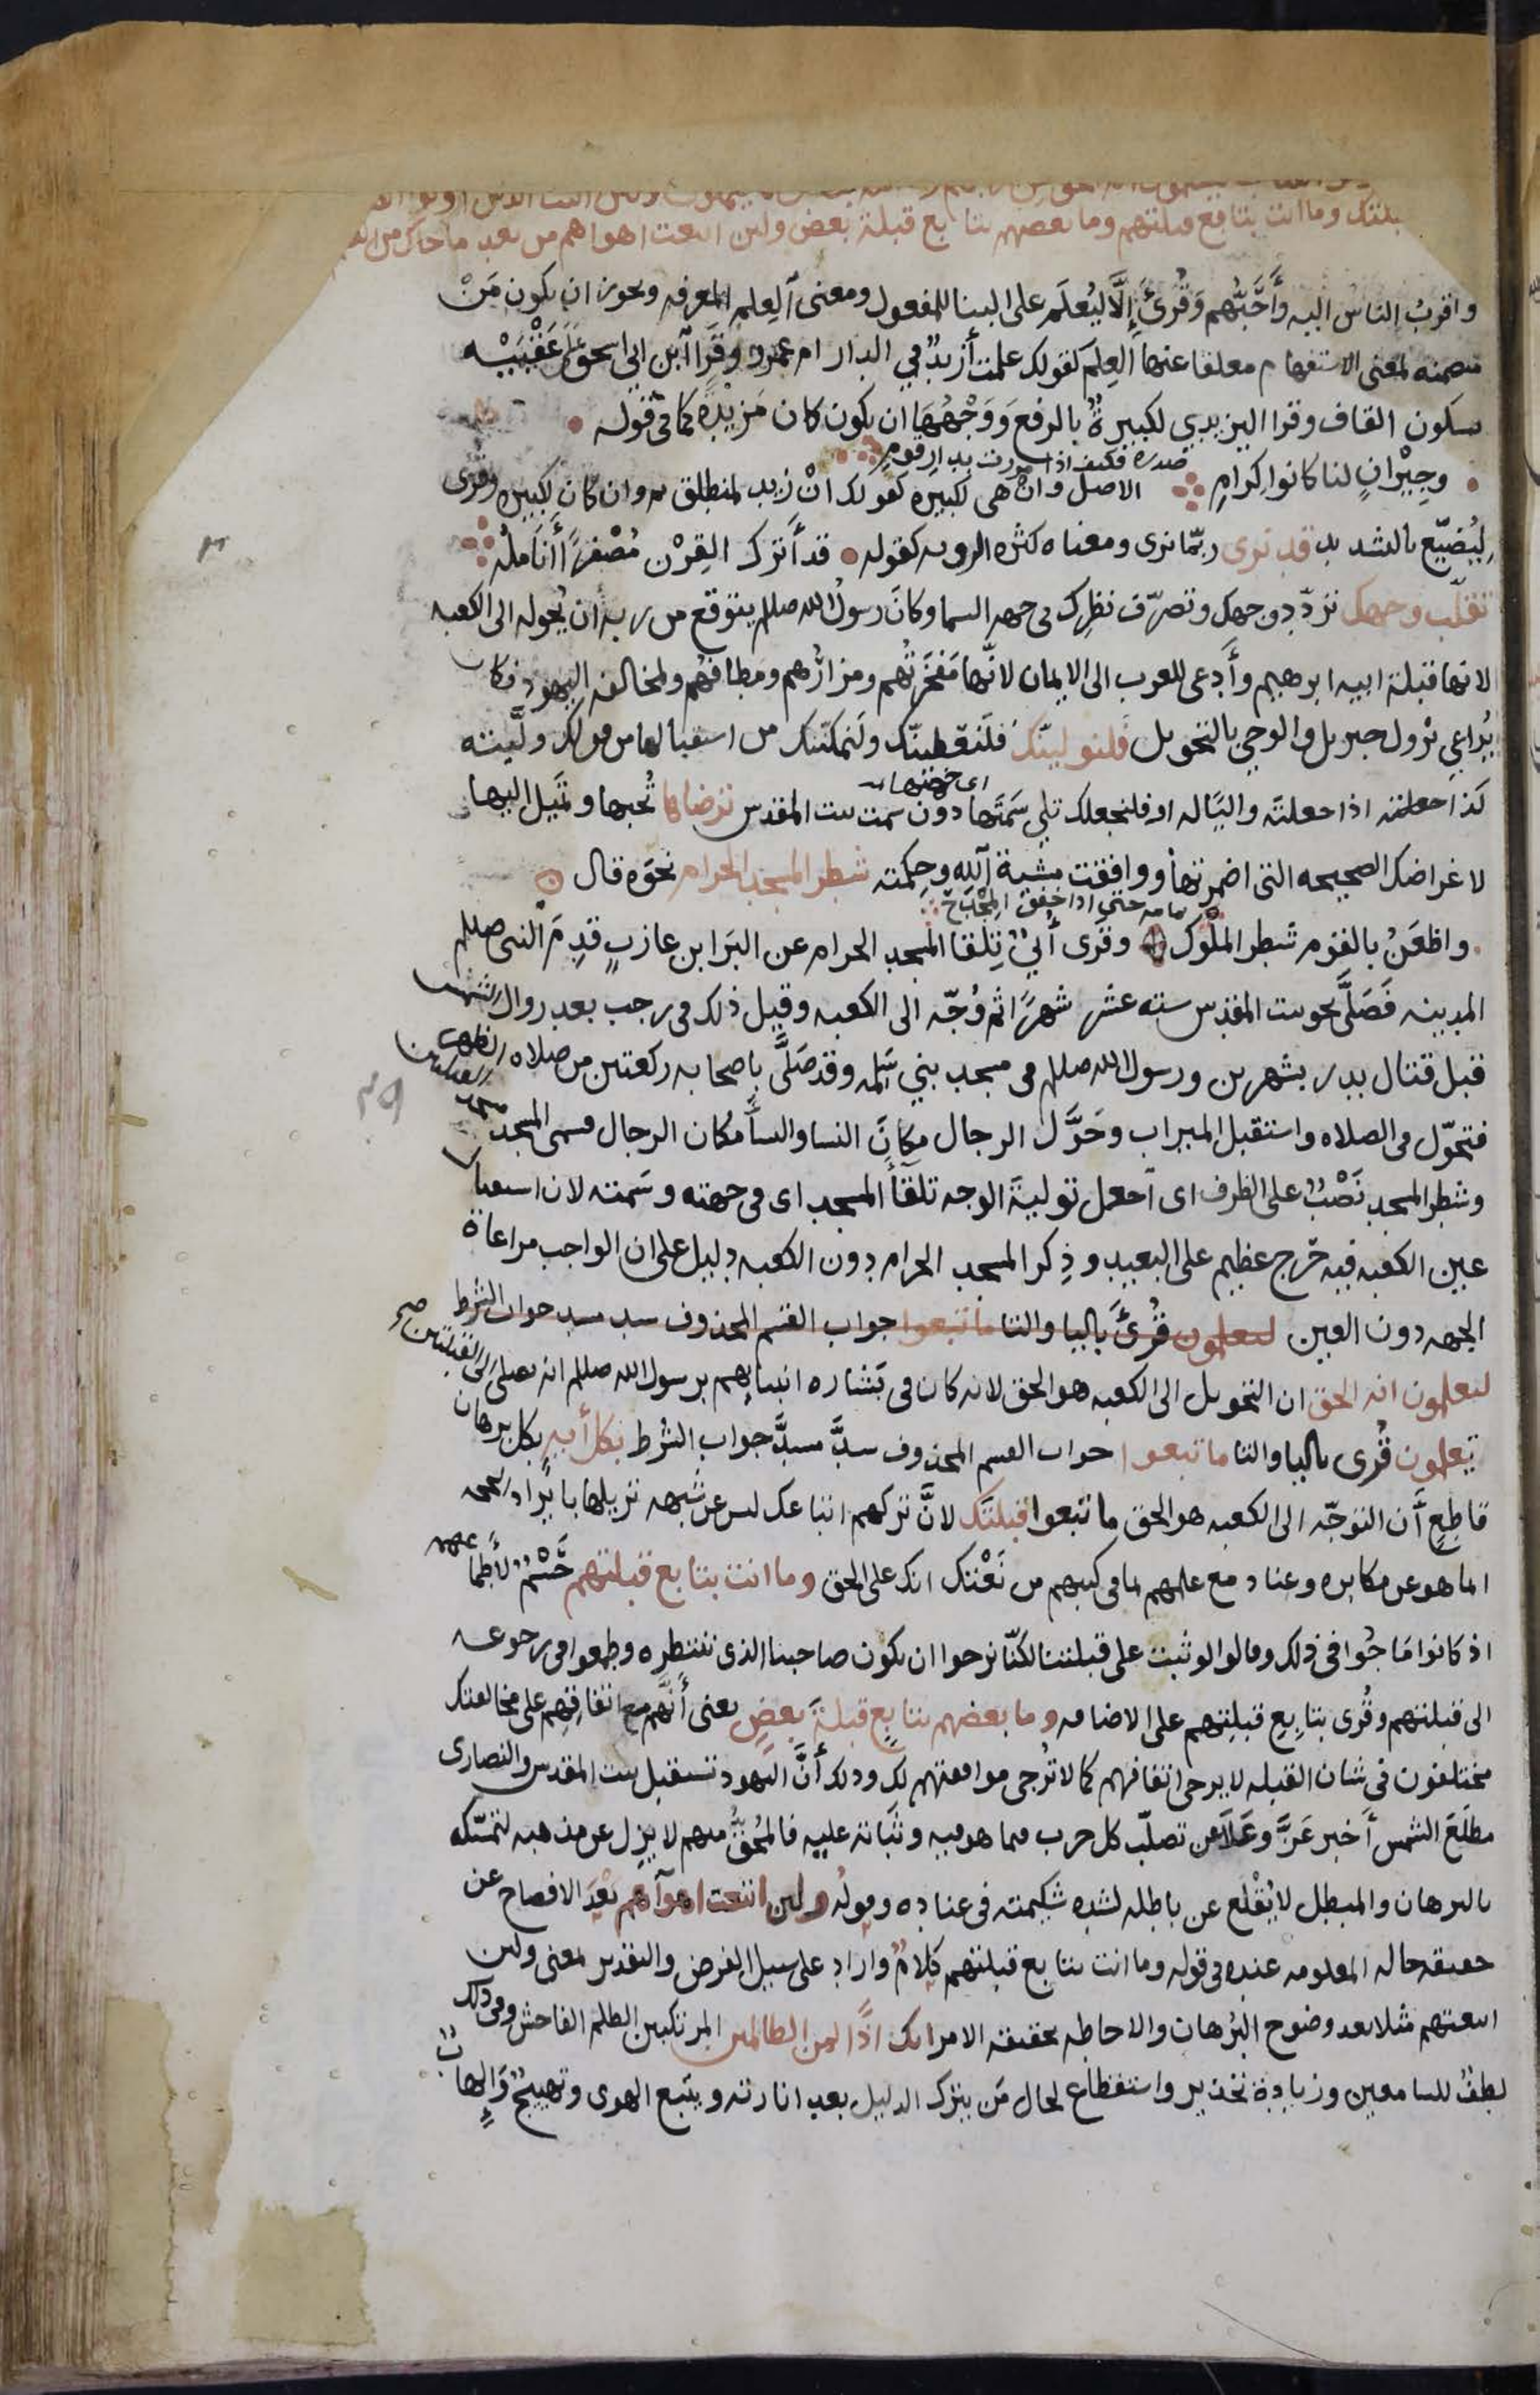 بلتك وما انت بتابع قبلتهم وما بعضهم بتابع قبلة بعض ولين اتبعت اهواهم من بعد ما جاك من العلم
واقربُ الناس اليه وأحبّهم وقُرئَ إلّا ليُعلَم على البنا للمفعول ومعنى العِلم المعرفه ويجوز ان يكون مَنْ
متضمنه لمعنى الاستفهام معلقا عنها العِلم كقولك علمت أزيدٌ في الدار ام عمرو وقرا ابن ابي اسحق على عَقْبَيْه
بسكون القاف وقرا اليزيدي لكبيرةٌ بالرفع وَوَجْهُهَا ان يكون كان مَزيدةً كما في قوله
وجِيْرانٍ لنا كانوا كرامِ صدره فكيف اذا مررت بدار قومٍ الاصل وانْ هى لكبيره كقولك انْ زيد لمنطلق ثم وان كان لكبيره وقرى
لِيُضيّع بالتشديد قد نرى ربّما نرى ومعناه كثره الرويه كقوله قد أترك القِرْن مُصْفرًا أناملُه
تقلّب وجهك تردّد وجهك وتصرّف نظرك فى جهه السما وكانَ رسولُ الله صللم يتوقع من ربه أن يُحوله الى الكعبه
لانها قبلة ابيه ابرهيم وأدعى للعرب الى الايمان لانّها مَفخَرَتُهم ومزارُهم ومطافهُم ولمخالفه اليهود فكان
يُراعِي نزول جبريل والوحي بالتحويل فلنولينّك فلَنعْطينّك ولَنمكننّك من استقبالها من قولك ولّيته
كذا جعلته اذا جعلتَه واليًا له او فلنجعلك تلي سَمتَها اى جهتها دون سمت بيت المقدس ترضاها تُحبها وتميل اليها
لاغراضك الصحيحه التى اضمرتها ووافقت مشية الله وحِكمته شطر المسجد الحرام نحوَه قال
واظعَنُ بالقوم شطر الملوك تمامه حتى اذا خفق المِجْدَح وقرى أبيّ تِلقا المسجد الحرام عن البَرا بن عازبٍ قدِمَ النبى صللم
المدينه فَصَلَّى نحو بيت المقدس سته عشر شهرًا ثم وُجّه الى الكعبه وقيل ذلك فى رجب بعد زوال الشمس
قبل قتال بدر بشهرين ورسول الله صللم فى مسجد بني سَلمه وقد صَلَّى باصحابه ركعتين من صلاه الظهر
فتحوّل فى الصلاه واستقبل الميزاب وحَوَّل الرجال مكانَ النسا والنسآ مكان الرجال فسمى المسجد مسجد القبلتين
وشطر المسجد نَصْبٌ على الظرف اى اجعل توليةَ الوجه تلقآ المسجد اى فى جهته وسَمته لان استقبال
عين الكعبه فيه حَرج عظيم على البعيد وذِكر المسجد الحرام دون الكعبه دليل على ان الواجب مراعاة
الجهه دون العين ليعلمون قُرئَ باليا والتا ما تبعوا جواب القسم المحذوف سد مسد جواب الشرط
ليعلمون انه الحق ان التحويل الى الكعبه هو الحق لانه كان فى بَشاره انبيايهم برسول الله صللم انه يصلى الى القبلتين صح
يَعلمون قُرى باليا والتا ما تبعوا جواب القسم المحذوف سدَّ مسدَّ جواب الشرط بكل أيه بكل برهان
قاطعٍ أن التوجّه الى الكعبه هو الحق ما تبعوا قبلتَك لانَّ تركهم اتباعك ليس عن شبهه تزيلها بايراد الحجه
انما هو عن مكابره وعناد مع علمهم لما فى كتبهم من نَعْتك انك على الحق وما انت بتابع قبلتهم حَسْمٌ لأطماعهم
اذ كانوا مَاجُوا فى ذلك وقالوا لو ثبت على قبلتنا لكنّا نرجوا ان يكون صاحبنا الذى ننتظره وطمعوا فى رجوعه
الى قبلتهم وقُرى بتابِعِ قبلتِهم على الاضافه وما بعضهم بتابعٍ قبلةَ بعضٍ يعنى أنّهم مع اتفاقهم على مخالفتك
مختلفون فى شان القبله لا يرجى اتفاقهم كما لا تُرجى موافقتهم لك وذلك أنَّ اليهود تستقبل بيت المقدس والنصارى
مطلعَ الشمس أخبر عَزَّ وعَلا عن تصلّب كل حزب فيما هو فيه وثَباته عليه فالمُحقُّ منهم لا يزل عن مذهبه لتمسّكه
بالبرهان والمبطل لا يُقْلع عن باطله لشده شَكيمته فى عناده وقولُه ولين اتبعت اهوآهم بَعْدَ الافصاح عن
حقيقه حاله المعلومه عنده فى قوله وما انت بتابع قبلتهم كلامٌ وارد على سبيل الفرض والتقدير لمعنى ولين
اتبعتهم مثلا بعد وضوح البُرهان والاحاطه بحقيقه الامر انك اذًا لمن الظالمين المرتكبين الظلم الفاحش وفى ذلك
لطفٌ للسامعين وزيادة تحذير واستفظاع لحال مَن يترك الدليل بعد انارته ويتبع الهوى وتهييجٌ وإلهابٌ